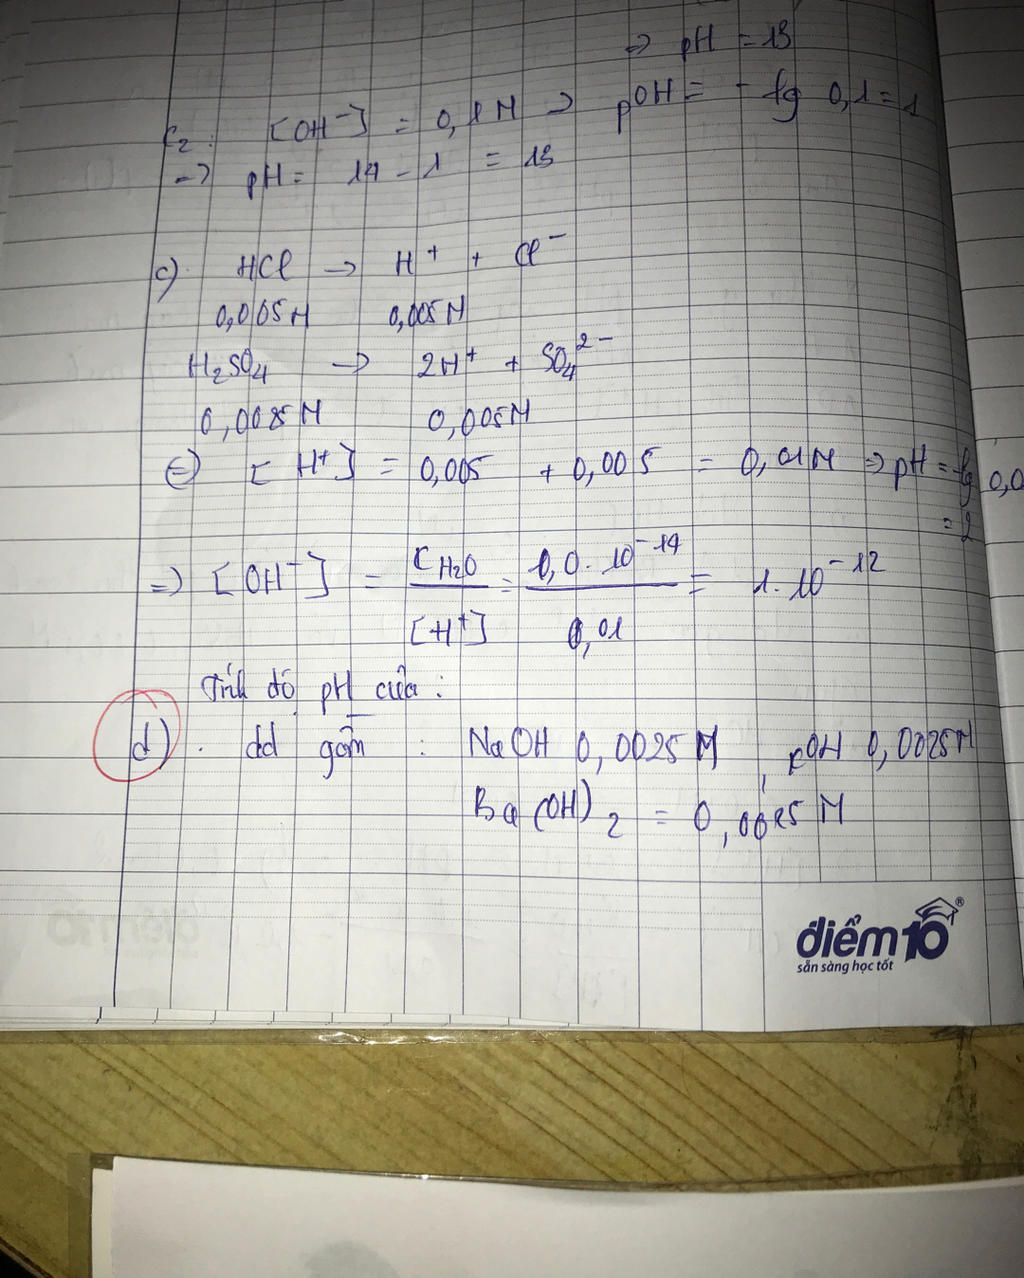 => pH = 13
C2: [OH⁻] = 0,1M => pOH = - lg 0,1 = 1
=> pH = 14 - 1 = 13
c) HCl → H⁺ + Cl⁻
0,005M 0,005M
H₂SO₄ → 2H⁺ + SO₄²⁻
0,0025M 0,005M
[H⁺] = 0,005 + 0,005 = 0,01M => pH = -lg 0,0
= 2
=> [OH⁻] = CH₂O / [H⁺] = 1,0.10⁻¹⁴ / 0,01 = 1.10⁻¹²
Tính độ pH của:
d). dd gồm: NaOH 0,0025M, KOH 0,0025M
Ba(OH)₂ = 0,0025M
điểm10®
sẵn sàng học tốt